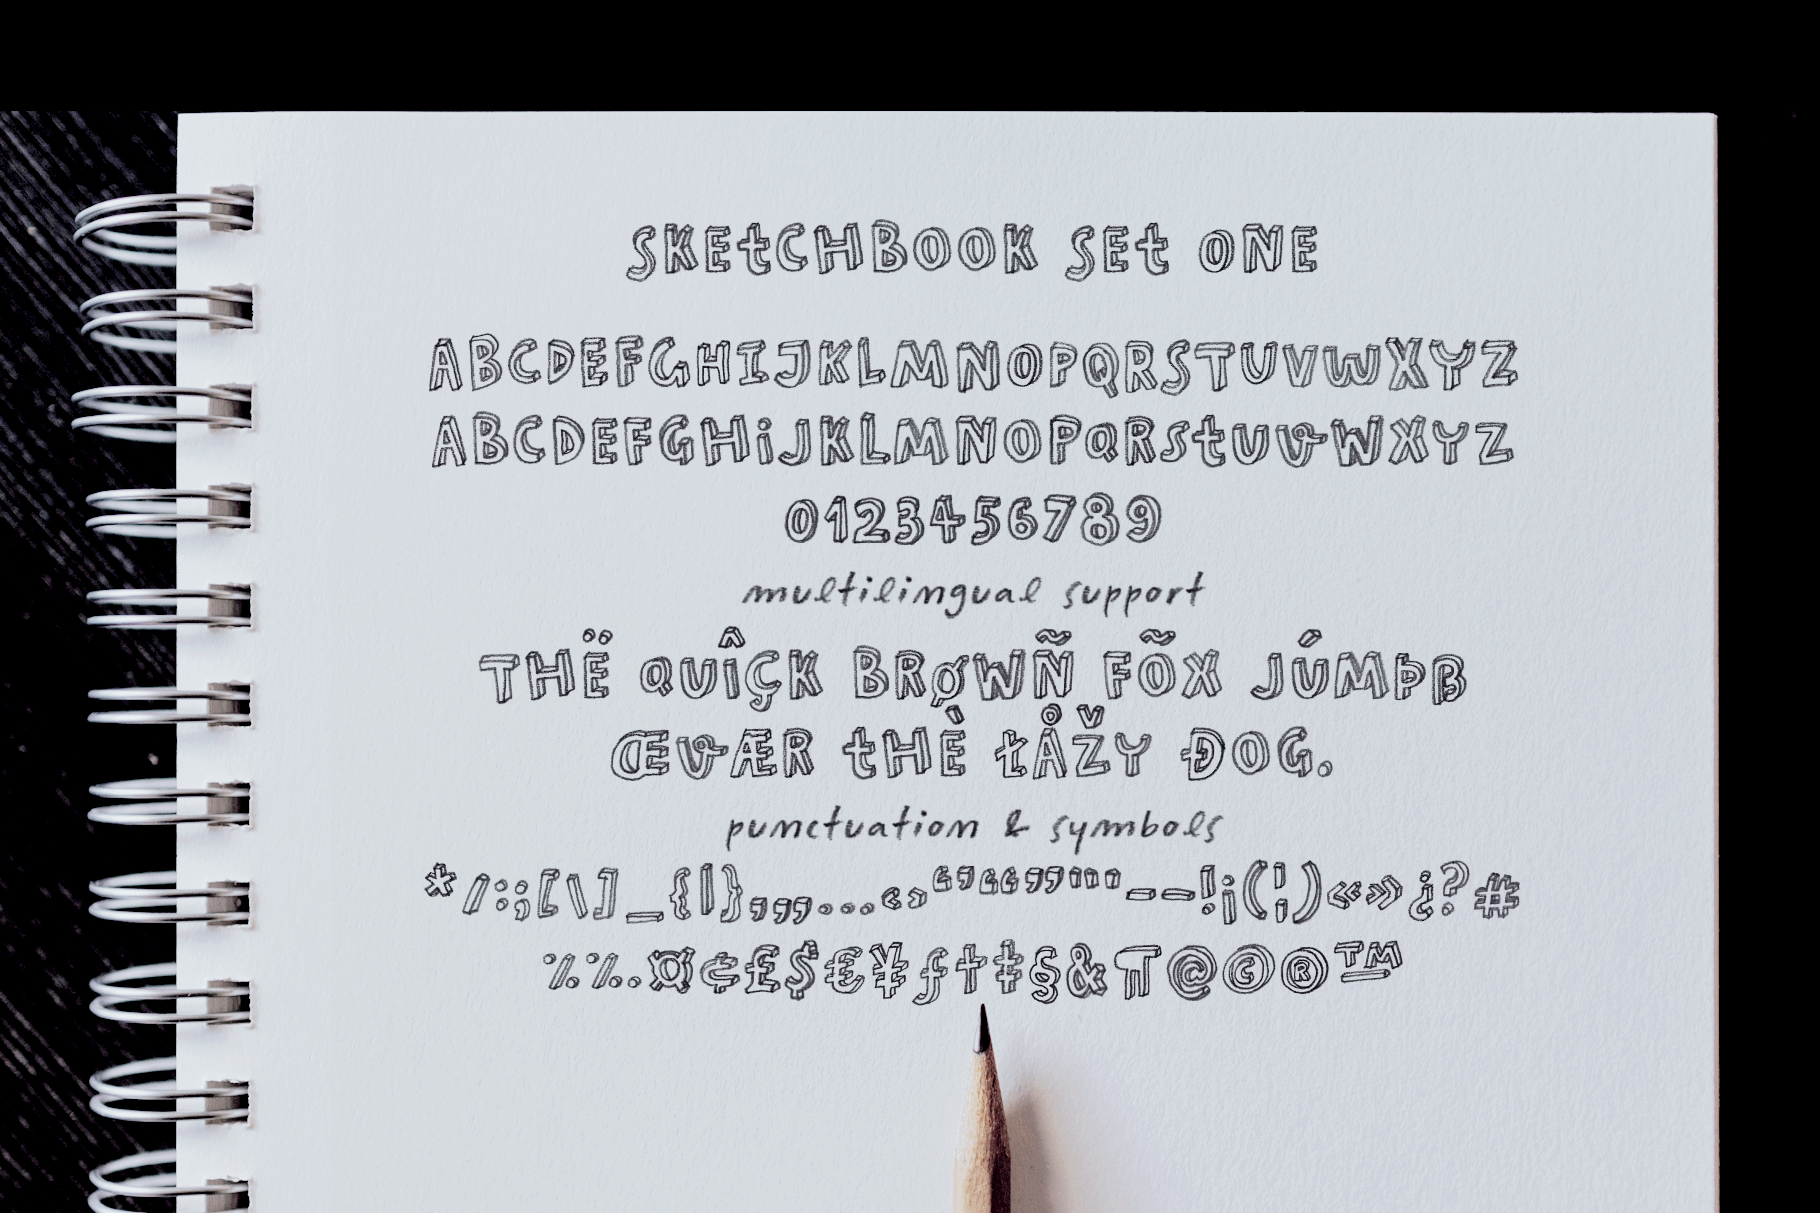 SKEtCHBOOK SEt ONE
ABCDEFGHIJKLMNOPQRSTUVWXYZ
ABCDEFGHiJKLMNOPQRStUVWXYZ
0123456789
multilingual support
THË QUÎÇK BRØWÑ FÕX JÚMÞß
ŒVÆR tHÈ ŁÅŽY ÐOG.
punctuation & symbols
*/:;[\]_{|}‚‚„…‹›‘’“”'"–—!¡(¦)«»¿?#
⁒%.¤¢£$€¥ƒ†‡§&¶@©®™